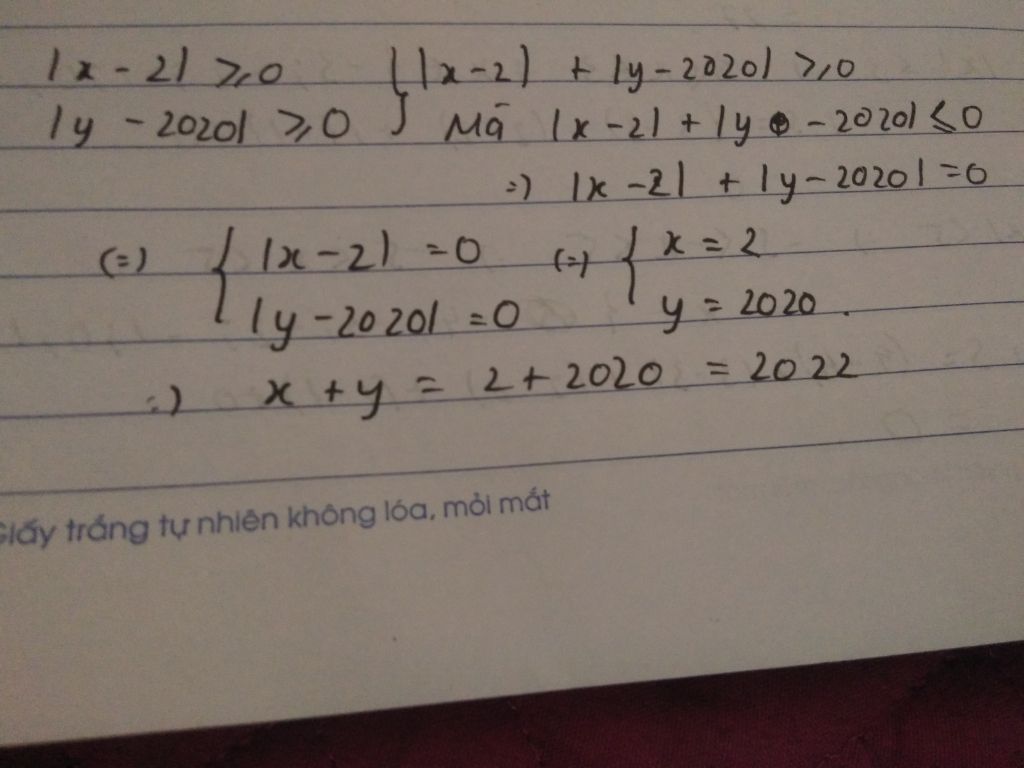 |x - 2| ≥ 0 } |x - 2| + |y - 2020| ≥ 0
|y - 2020| ≥ 0 } Mà |x - 2| + |y - 2020| ≤ 0
=) |x - 2| + |y - 2020| = 0
(=) { |x - 2| = 0 (=) { x = 2
|y - 2020| = 0 y = 2020.
=) x + y = 2 + 2020 = 2022
Giấy trắng tự nhiên không lóa, mỏi mắt